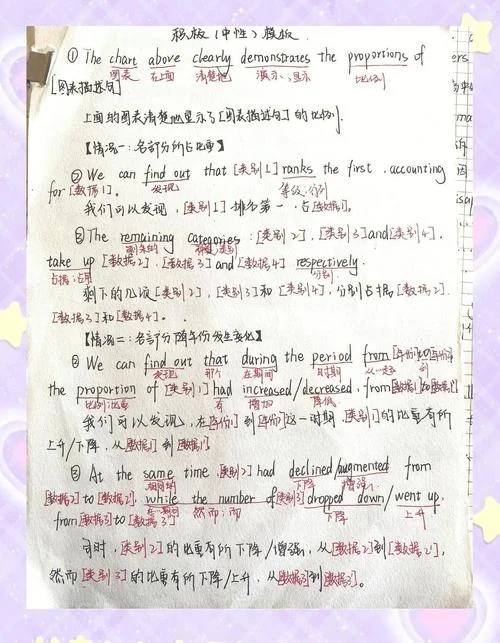 积极(中性)模板
① The chart above clearly demonstrates the proportions of
图表 在上面 清楚地 演示、显示 比例
[图表描述句]
上面的图表清楚地显示了[图表描述句]的比例.
【情况一:各部分所占比重】
② We can find out that [类别1] ranks the first, accounting
发现 等级、分列
for [数据1].
我们可以发现,[类别1]排名第一,占[数据1].
③ The remaining categories:[类别2],[类别3]and[类别4],
剩余的 种类
take up [数据2].[数据3]and[数据4] respectively.
占据;占用 分别
剩下的几项[类别2],[类别3]和[类别4],分别占据[数据2].
[数据3]和[数据4]。
【情况二:各部分随年份发生变化】
② We can find out that during the period from[年份]to[年份],
发现 那个 在期间 时期 从
the proportion of [类别1] had increased/decreased, from[数据1]to[数据1'],
比例;比重 有 增加 降低
我们可以发现,在[年份]到[年份]这一时期,[类别1]的比重有所
上升/下降,从[数据1]到[数据1'].
③ At the same time,[类别2] had declined/augmented from
相同的 下降 增强
[数据2]to[数据2'], while the number of[类别3]dropped down/went up,
然而;而 下降 上升
from[数据3]to[数据3']
同时,[类别2]的比重有所下降/增强,从[数据2]到[数据2'],
然而[类别3]的比重有所下降/上升,从[数据3]到[数据3'].